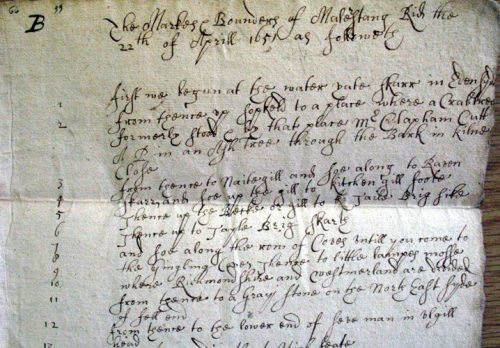 B
The Markes & Bounders of Malestang Rid the
22th of Aprill 1651 as followeth
first we begun at the water yate skarr in
1 from thence up to a place where a Crabtree
2 formerly stood that place Mr Clapham Cutt
A P in an Ash tree through the Bark in kilne
Close
3 from thence to Naitegill and soe along to Raven
4 skarr and soe up the gill to kitchen gill foote
5 thence up the Becke to Jaile Brig sike
6 thence up to Jayle Brig skarth
7 and soe along the rom of Coves untill you come to
8 the yingling Cove Thence to little tahipes mosse
9 where Richmondshire and westmerland are devided
10 from thence to a Gray stone on the North East syde
11 of fell end
12 from thence to the lower end of seve man in Ulgill
head